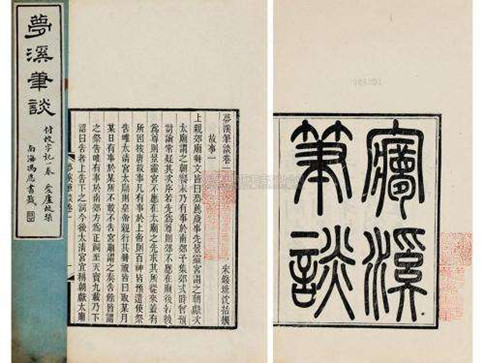 夢溪筆談
付校字記一卷 愛廬校槧
南海馮愿書籤
夢溪筆談卷一
宋錢塘沈括撰
故事一
上親郊廟冊文皆曰恭薦歲事先景靈宮謂之朝獻次
太廟謂之朝饗末乃有事於南郊予集郊式時曾預
討論常疑其次序若先為尊則郊不應在廟後若後
為尊則景靈宮不應在太廟之先求其所從來蓋有
所因按唐故事凡有事於上帝則百神皆預遣使祭
告唯太清宮太廟則皇帝親行其冊祝皆曰取某月
某日有事於某所不敢不告宮廟謂之奏告餘皆謂
之祭告唯有事於南郊方為正祠至天寶九載乃下
詔曰告者上告下之詞今後太清宮宜稱朝獻太廟
夢溪
筆談